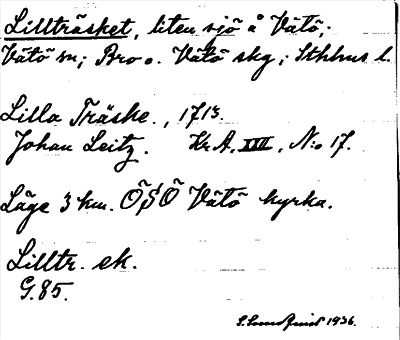 Lillträsket, liten sjö å Vätö;
Vätö sn; Bro o. Vätö skg; Sthlms l.
Lilla Träske., 1713.
Johan Leitz. Kr A, XIII, N:o 17.
Läge 3 km. ÖSÖ Vätö kyrka.
Lilltr. ek.
G.85.
1936.